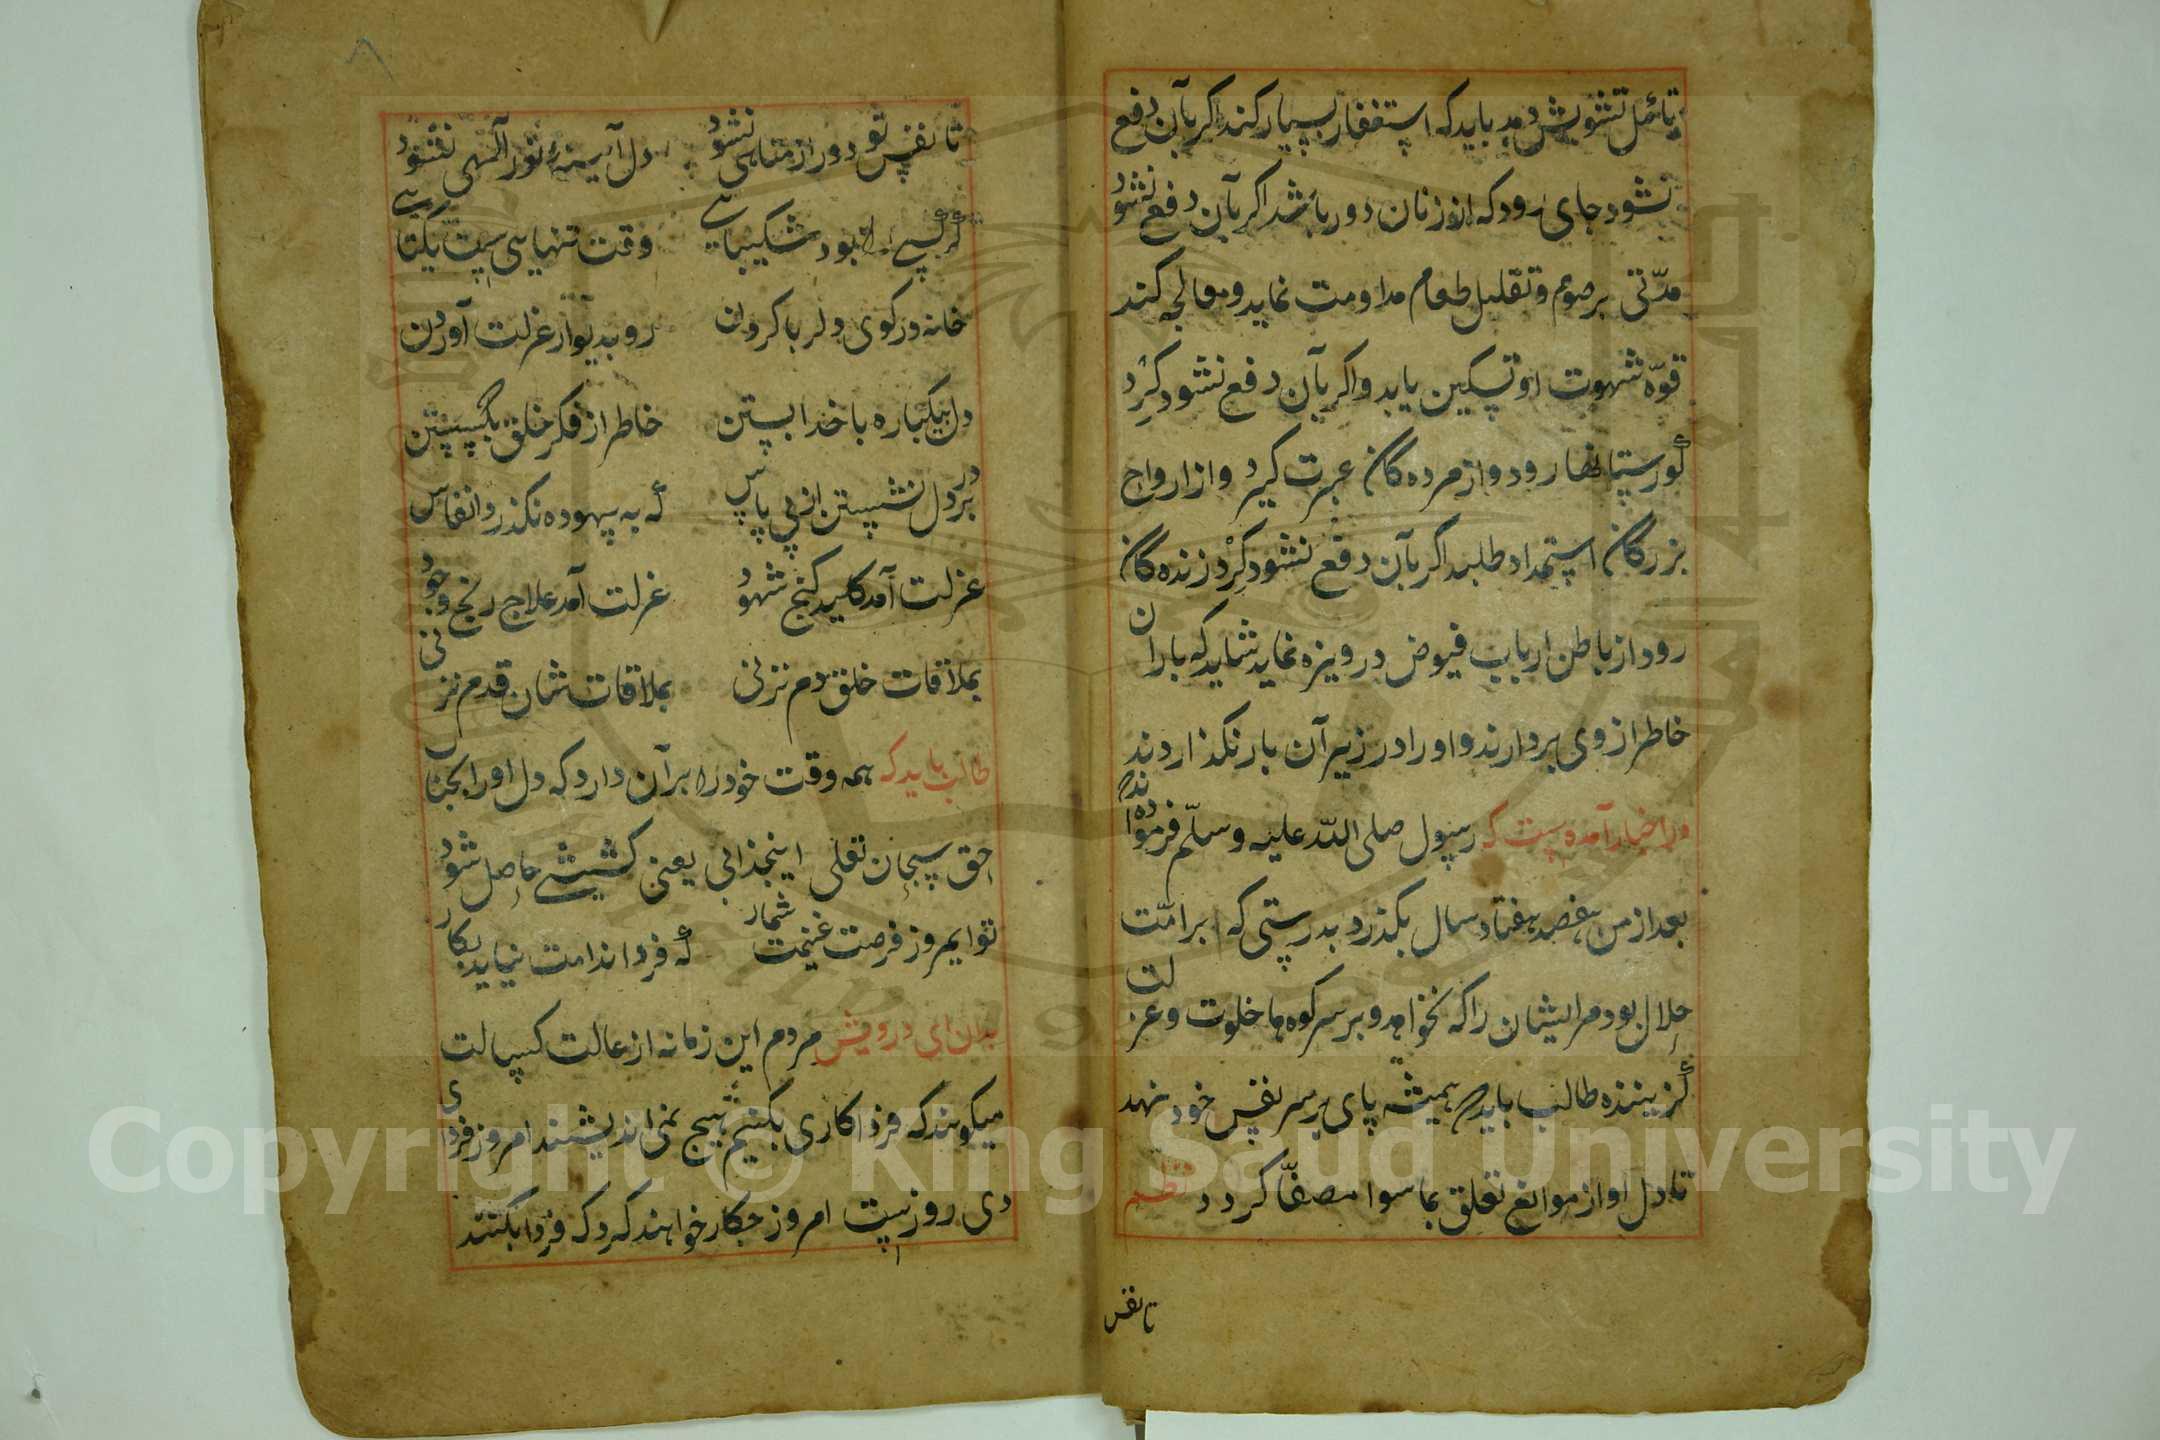 تأمل تشویش دهد باید که استغفار بسیار کند اگر بآن دفع
نشود جای رود که از زنان دور باشد اگر بآن دفع نشود
مدّتی بر صوم و تقلیل طعام مداومت نماید و معالجه کند
قوّه شهوت او تسکین یابد و اگر بآن دفع نشود گرد
گورستانها رود و از مرده گان عبرت گیرد و از ارواح
بزرگان استمداد طلبد اگر بآن دفع نشود گرد زنده گان
رود از باطن ارباب فیوض درویزه نماید شاید که باران
خاطر از وی بردارند و او را در زیر آن بار نگذارند
در اخبار آمده است که رسول صلی الله علیه و سلّم فرموده اند
بعد از من هفصد هفتاد سال بگذرد بدرستی که بر امّت
حلال بود مر ایشان را که نخواهد و بر سر کوه ها خلوت و عزلت
گزیننده طالب باید همیشه پای بر سر نفس خود نهد
تا دل او از موانع تعلق بماسوا مصفّا گردد نظم
تا نفس
تا نفس تو دور از مناهی نشود دل آیینهٔ نور الهی نشود
گر کسی را بود شکیبایی وقت تنهایی ست یکتایی
خانه در کوی دلربا کردن رو بدیوار عزلت آوردن
دل بیکباره با خدا بستن خاطر از فکر خلق بگسستن
بر در دل نشستن از پی پاس که به بیهوده نگذرد انفاس
عزلت آمد کلید گنج شهود عزلت آمد علاج رنج وجود
بملاقات خلق دم نزنی بملاقات شان قدم نزنی
طالب باید که همه وقت خود را بر آن دارد که دل او را بجناب
حق سبحان تعلی اینجذابی یعنی کششی حاصل شود
تو امروز فرصت غنیمت شمار که فردا ندامت نیاید بکار
بدان ای درویش مردم این زمانه از عالت کسالت
میگویند که فردا کاری بکنیم هیچ نمی اندیشند امروز فردای
دی روزست امروز چکار خواهند کرد که فردا بکنند
Copyright © King Saud University